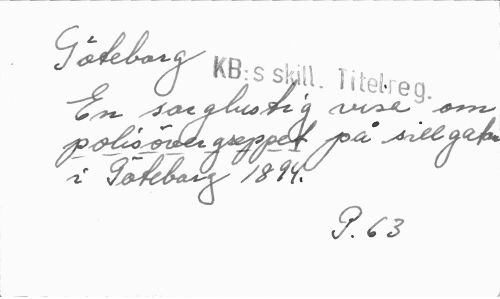 Göteborg
KB:s skill. Titelreg.
En sorglustig visa om
polisövergreppet på sillgatan
i Göteborg 1894.
P. 63